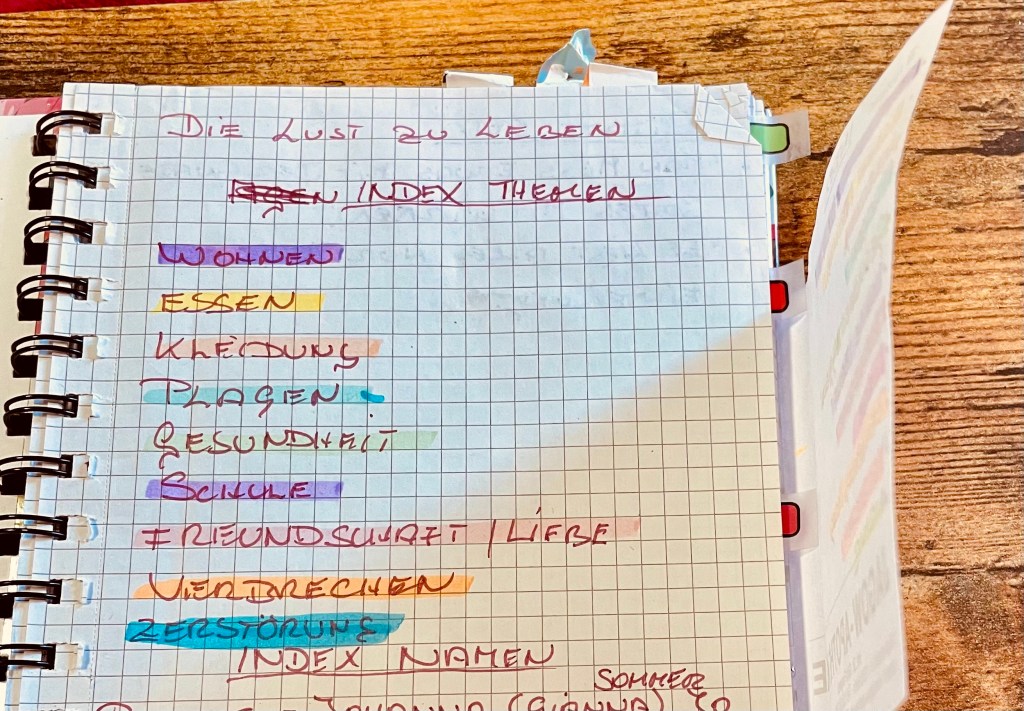 DIE LUST ZU LEBEN
INDEX THEMEN
WOHNEN
ESSEN
KLEIDUNG
PLAGEN
GESUNDHEIT
SCHULE
FREUNDSCHAFT / LIEBE
VERBRECHEN
ZERSTÖRUNG
INDEX NAMEN
SOMMER
JOHANNA (GIANNA)